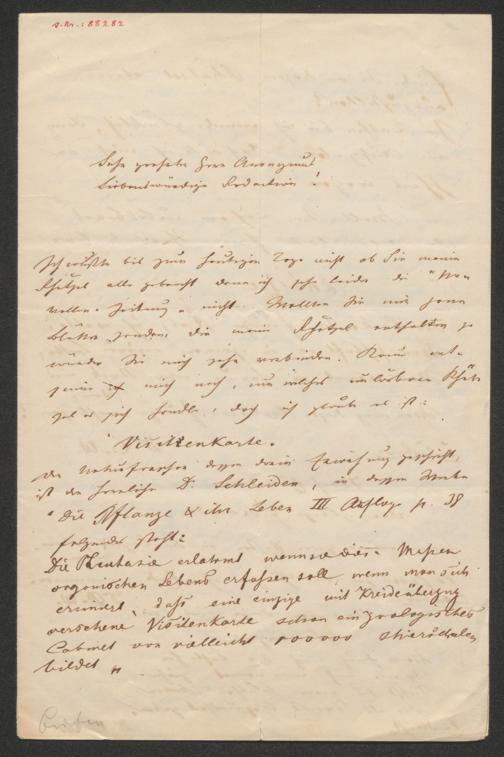 A.Nr.: 88282
Sehr geehrter Herr Anonymus
Liebenswürdige Redaction!
Ich wußte bis zum heutigen Tage nicht ob Sie meine
Rhätsel alle gebracht denn ich sehe leider die "No-
vellen-Zeitung" nicht. Wollten Sie mir jene
Blätter senden die mein Rhätsel enthalten so
würden Sie mich sehr verbinden. Kaum
ich mich noch, um welches unlösbare Rhät-
sel es sich handle, doch ich glaube es ist:
"Visittenkarte.
Der Naturforscher dessen darin Erwähnung geschieht,
ist der herrliche Dr. Schleiden, in dessen Werke
"Die Pflanze & ihr Leben III Auflage p. 38
folgendes steht:
Die Phantasie erlahmt wenn sie diese Massen
organischen Lebens erfassen soll, wenn man sich
erinnert, daß eine einzige mit Kreideüberzug
versehene Visitenkarte schon ein zoologisches
Cabinet von vielleicht 100000 Thierschalen
bildet "